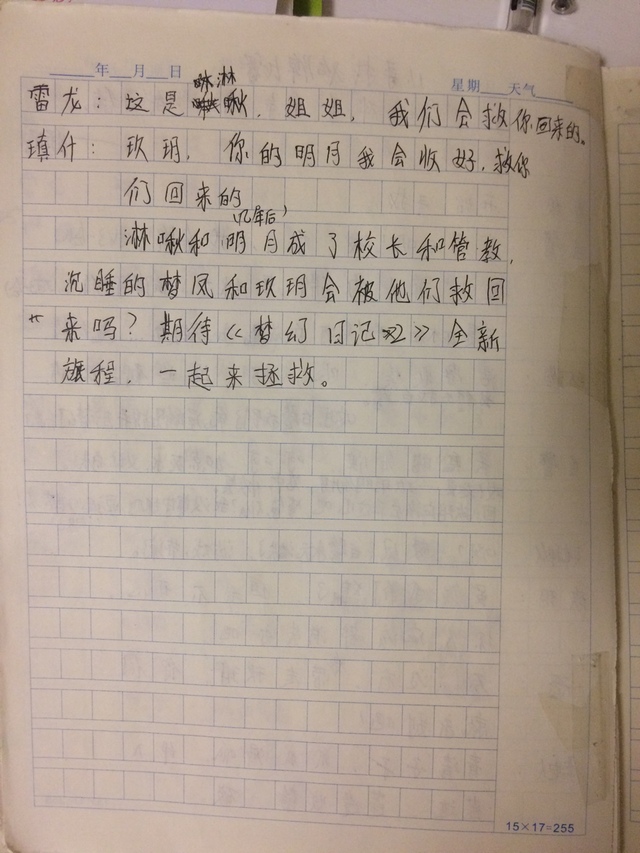 年 月 日
星期 天气
雷龙：这是淋啾，姐姐，我们会救你回来的。
瑱什：玖玥，你的明月我会收好，救你
们回来的
（几年后）
淋啾和明月成了校长和管教，
沉睡的梦凤和玖玥会被他们救回
来吗？期待《梦幻日记2》全新
旅程，一起来拯救。
15×17=255